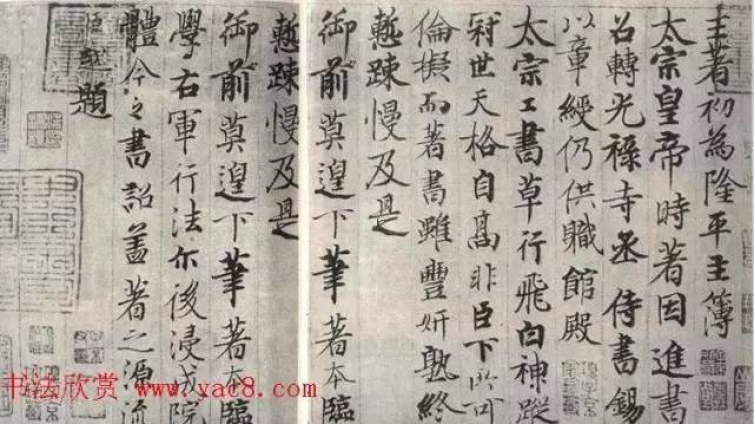 王著初為隆平主簿
太宗皇帝時著因進書
召轉光祿寺丞侍書錫
以章綬仍供職館殿
太宗工書草行飛白神蹤
冠世天格自高非臣下所可
倫擬而著書雖豐妍熟終
慙疎慢及是
御前莫遑下筆著本臨
慙疎慢及是
御前莫遑下筆著本臨
學右軍行法尔後浸成院
體今之書詔盖著之源流
題
书法欣赏 www.yac8.com